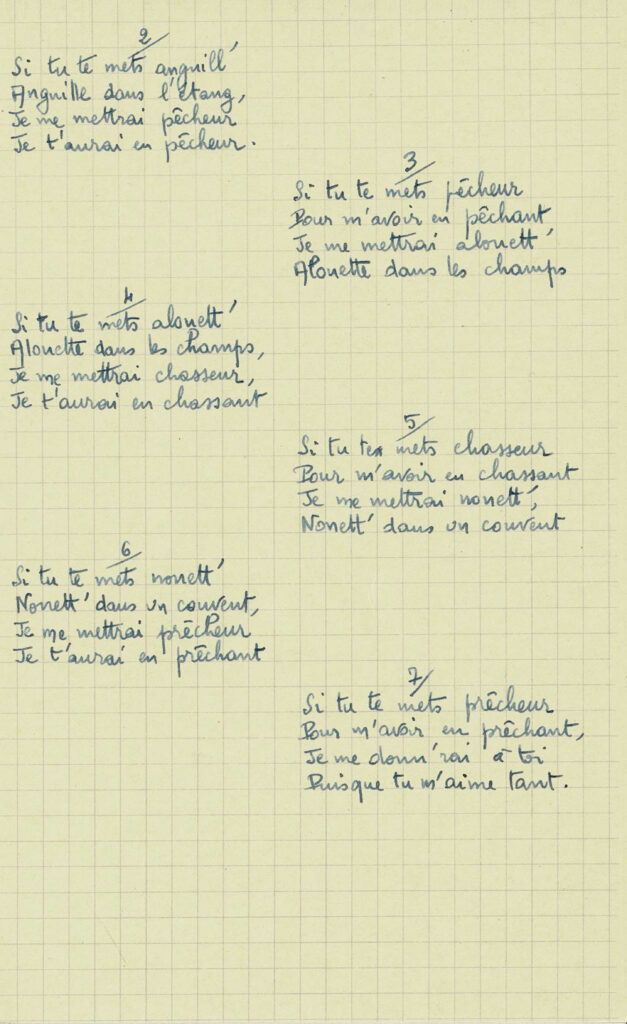 2
Si tu te mets anguill'
Anguille dans l'étang,
Je me mettrai pêcheur
Je t'aurai en pêcheur.
3
Si tu te mets pêcheur
Pour m'avoir en pêchant
Je me mettrai alouett'
Alouette dans les champs
4
Si tu te mets alouett'
Alouette dans les champs,
Je me mettrai chasseur,
Je t'aurai en chassant
5
Si tu te mets chasseur
Pour m'avoir en chassant
Je me mettrai nonett',
Nonett' dans un couvent
6
Si tu te mets nonett'
Nonett' dans un couvent,
Je me mettrai prêcheur
Je t'aurai en prêchant
7
Si tu te mets prêcheur
Pour m'avoir en prêchant,
Je me donn'rai à toi
Puisque tu m'aime tant.